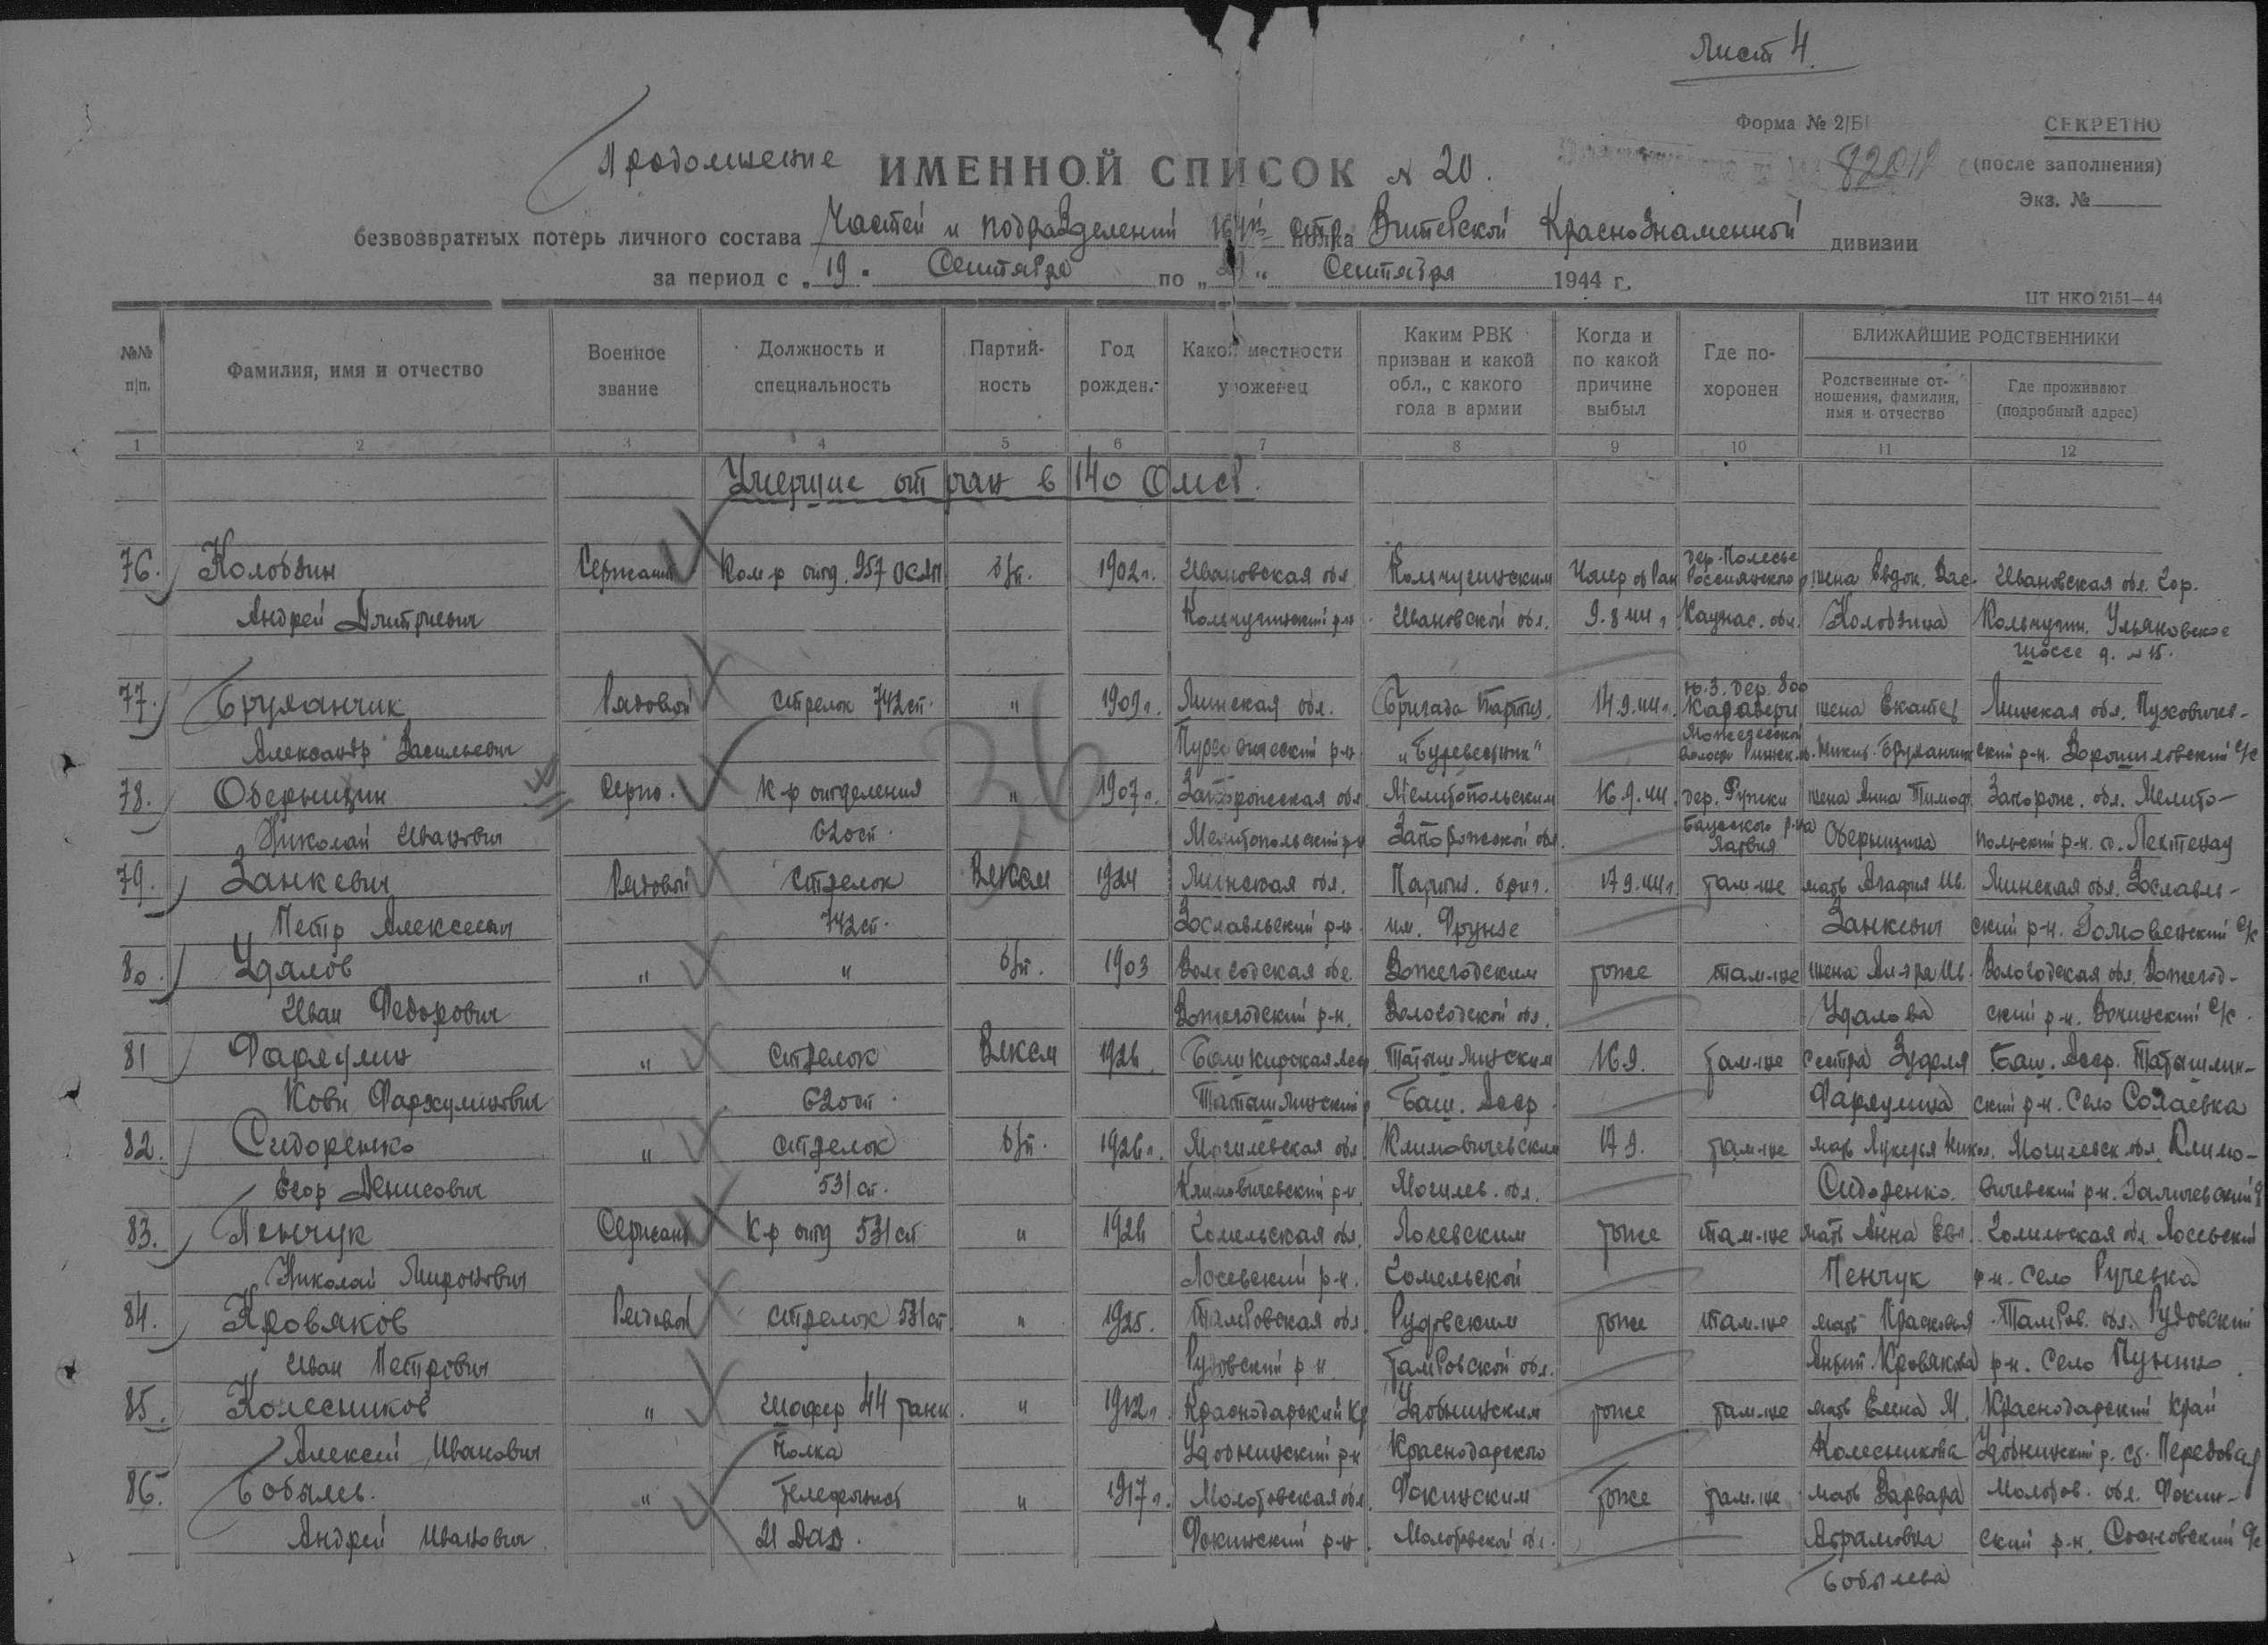 Лист 4.
Форма № 2/Б
СЕКРЕТНО
(после заполнения)
Экз. №
Продолжение ИМЕННОЙ СПИСОК № 20.
82012
безвозвратных потерь личного состава Частей и подразделений стр. Витебской Краснознаменной дивизии
за период с „19" Сентября по „ " Сентября 1944 г.
ЦТ НКО 2151—44
№№ п/п.
Фамилия, имя и отчество
Военное звание
Должность и специальность
Партийность
Год рожден.
Какой местности уроженец
Каким РВК призван и какой обл., с какого года в армии
Когда и по какой причине выбыл
Где похоронен
БЛИЖАЙШИЕ РОДСТВЕННИКИ
Родственные отношения, фамилия, имя и отчество
Где проживают (подробный адрес)
1 2 3 4 5 6 7 8 9 10 11 12
Умершие от ран в 140 Омсб.
76. Колобзин Сержант Ком-р отд. 957 б/п. 1902 г. Ивановская обл. Кольчугинским Умер от ран дер. Полесье жена Евдок. Вас. Ивановская обл. гор.
Андрей Дмитриевич Кольчугинский р-н Ивановской обл. 9.8.44 г. Каунас. обл. Колобзина Кольчугин. Ульяновское
шоссе д. № 15.
77. Бруханчик Рядовой стрелок 742 сп. " 1909 г. Минская обл. Бригада Партиз. 14.9.44 г. ю.з. дер. 800 жена Екатер Минская обл. Пуховичс-
Александр Васильевич р-н „Буревестник" ский р-н. Ворошиловский с/с
78. Оберемщин Серж. К-р отделения " 1907 г. Запорожская обл. Мелитопольским 16.9.44. дер. жена Анна Тимоф. Запорож. обл. Мелито-
Николай Иванович 620 сп. Мелитопольский р-н Запорожской обл. Латвия польский р-н.
79. Занкевич Рядовой стрелок ВЛКСМ 1924 Минская обл. Партиз. бриг. 17.9.44 г. там-же мать Агафия Ив. Минская обл. Зославль-
Петр Алексеевич 742 сп. Зославльский р-н им. Фрунзе Занкевич ский р-н. с/с
80. Удалов " " б/п. 1903 Вологодская обл. Вожегодским тоже там-же жена Ал-дра Ив. Вологодская обл. Вожегод-
Иван Федорович Вожегодский р-н. Вологодской обл. Удалова ский р-н. с/с
81 " стрелок ВЛКСМ 1926 Башкирская Асср Татышлинским 16.9. там-же сестра Баш. Асср. Татышлин-
620 сп Татышлинский Баш. Асср ский р-н. село
82. Сидоренко " стрелок б/п. 1926 г. Могилевская обл. Климовичевским 17.9. там-же мать Лукерья Никол. Могилевск. обл. Климо-
Егор Денисович 531 сп. Климовичевский р-н. Могилев. обл. Сидоренко. вичевский р-н.
83. Пенчук Сержант К-р отд 531 сп " 1926 Гомельская обл. Лоевским тоже там-же мать Анна Гомельская обл. Лоевский
Николай Миронович Лоевский р-н. Гомельской Пенчук р-н. село Ручеевка
84. Кровяков Рядовой стрелок 531 сп " 1925. Тамбовская обл. Рудовским тоже там-же мать Прасковья Тамбов. обл. Рудовский
Иван Петрович Рудовский р-н Тамбовской обл. Кровякова р-н. село
85. Колесников " шофер 44 танк. " 1912 г. Краснодарский Кр. Удобнинским тоже там-же мать Елена М. Краснодарский край
Алексей Иванович полка Удобнинский р-н Краснодарского Колесникова Удобнинский р. Передовая
86. Бобылев. " Телефонист " 1917 г. Молотовская обл. Фокинским тоже там-же мать Варвара Молотов. обл. Фокин-
Андрей Иванович Фокинский р-н Молотовской обл. Абрамовна ский р-н. Сосновский с/с
Бобылева